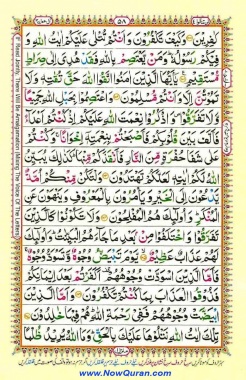 ٥٨
كٰفِرِيْنَ وَكَيْفَ تَكْفُرُوْنَ وَاَنْتُمْ تُتْلٰى عَلَيْكُمْ اٰيٰتُ اللّٰهِ وَ
فِيْكُمْ رَسُوْلُهٗ وَمَنْ يَّعْتَصِمْ بِاللّٰهِ فَقَدْ هُدِيَ اِلٰى صِرَاطٍ
مُّسْتَقِيْمٍ يٰۤاَيُّهَا الَّذِيْنَ اٰمَنُوا اتَّقُوا اللّٰهَ حَقَّ تُقٰتِهٖ وَلَا
تَمُوْتُنَّ اِلَّا وَاَنْتُمْ مُّسْلِمُوْنَ وَاعْتَصِمُوْا بِحَبْلِ اللّٰهِ جَمِيْعًا
وَّلَا تَفَرَّقُوْا وَاذْكُرُوْا نِعْمَتَ اللّٰهِ عَلَيْكُمْ اِذْ كُنْتُمْ اَعْدَآءً
فَاَلَّفَ بَيْنَ قُلُوْبِكُمْ فَاَصْبَحْتُمْ بِنِعْمَتِهٖۤ اِخْوَانًا وَكُنْتُمْ
عَلٰى شَفَا حُفْرَةٍ مِّنَ النَّارِ فَاَنْقَذَكُمْ مِّنْهَا كَذٰلِكَ يُبَيِّنُ
اللّٰهُ لَكُمْ اٰيٰتِهٖ لَعَلَّكُمْ تَهْتَدُوْنَ وَلْتَكُنْ مِّنْكُمْ اُمَّةٌ
يَّدْعُوْنَ اِلَى الْخَيْرِ وَيَاْمُرُوْنَ بِالْمَعْرُوْفِ وَيَنْهَوْنَ عَنِ
الْمُنْكَرِ وَاُولٰٓئِكَ هُمُ الْمُفْلِحُوْنَ وَلَا تَكُوْنُوْا كَالَّذِيْنَ
تَفَرَّقُوْا وَاخْتَلَفُوْا مِنْۢ بَعْدِ مَا جَآءَهُمُ الْبَيِّنٰتُ وَاُولٰٓئِكَ
لَهُمْ عَذَابٌ عَظِيْمٌ يَّوْمَ تَبْيَضُّ وُجُوْهٌ وَّتَسْوَدُّ وُجُوْهٌ
فَاَمَّا الَّذِيْنَ اسْوَدَّتْ وُجُوْهُهُمْ اَكَفَرْتُمْ بَعْدَ اِيْمَانِكُمْ
فَذُوْقُوا الْعَذَابَ بِمَا كُنْتُمْ تَكْفُرُوْنَ وَاَمَّا الَّذِيْنَ
ابْيَضَّتْ وُجُوْهُهُمْ فَفِيْ رَحْمَةِ اللّٰهِ هُمْ فِيْهَا خٰلِدُوْنَ
تِلْكَ اٰيٰتُ اللّٰهِ نَتْلُوْهَا عَلَيْكَ بِالْحَقِّ وَمَا اللّٰهُ يُرِيْدُ ظُلْمًا
www.NowQuran.com